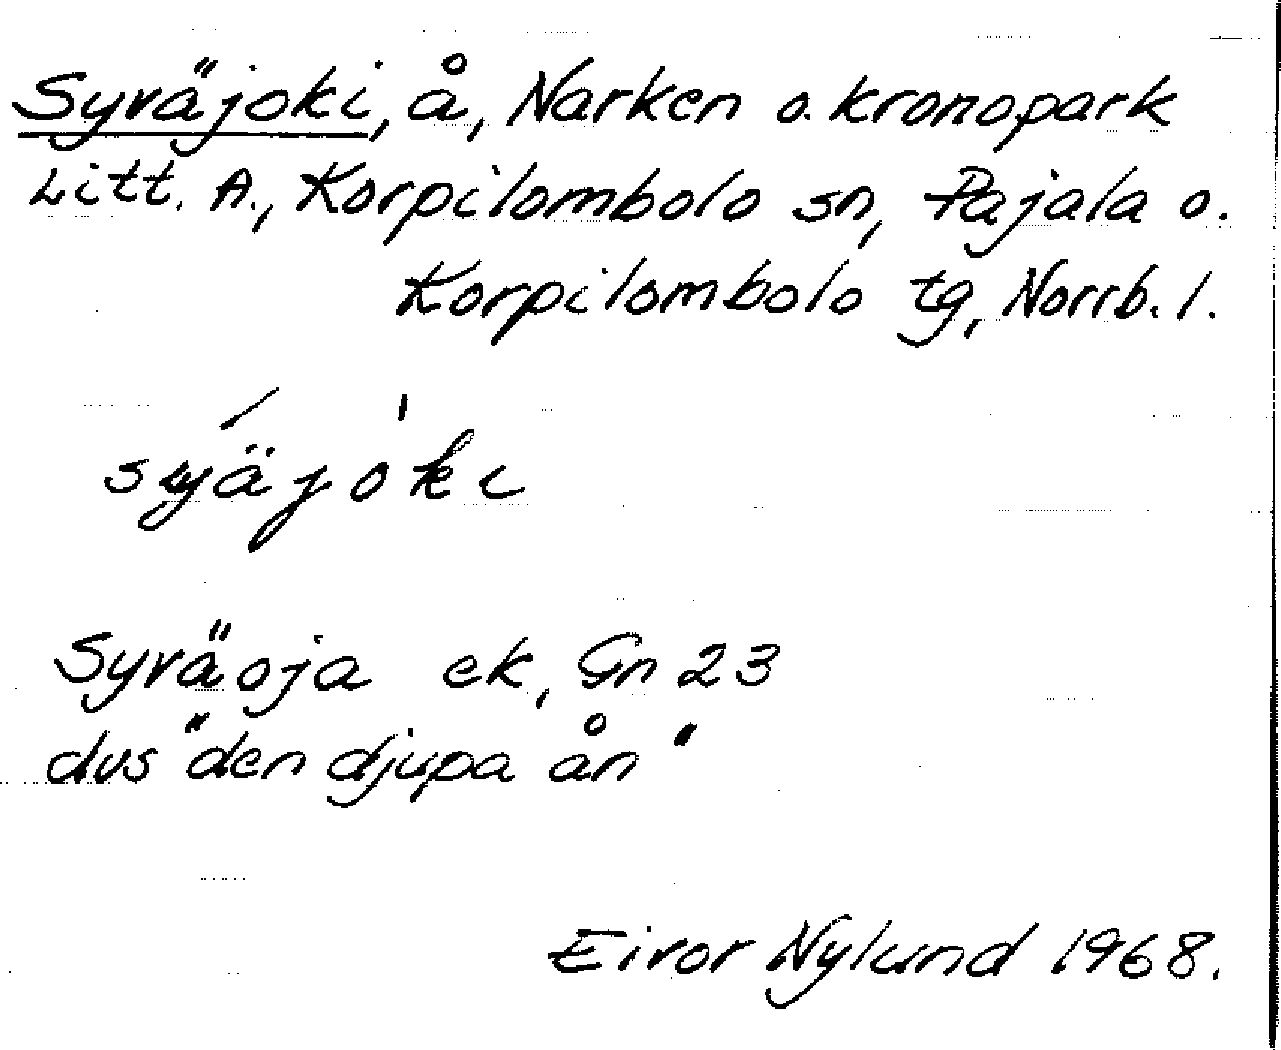 Syväjoki, å, Narken o. kronopark
Litt. A., Korpilombolo sn, Pajala o.
Korpilombolo tg, Norrb. l.
syäjoki
Syväoja ek, Gn 23
dvs "den djupa ån"
Eivor Nylund 1968.